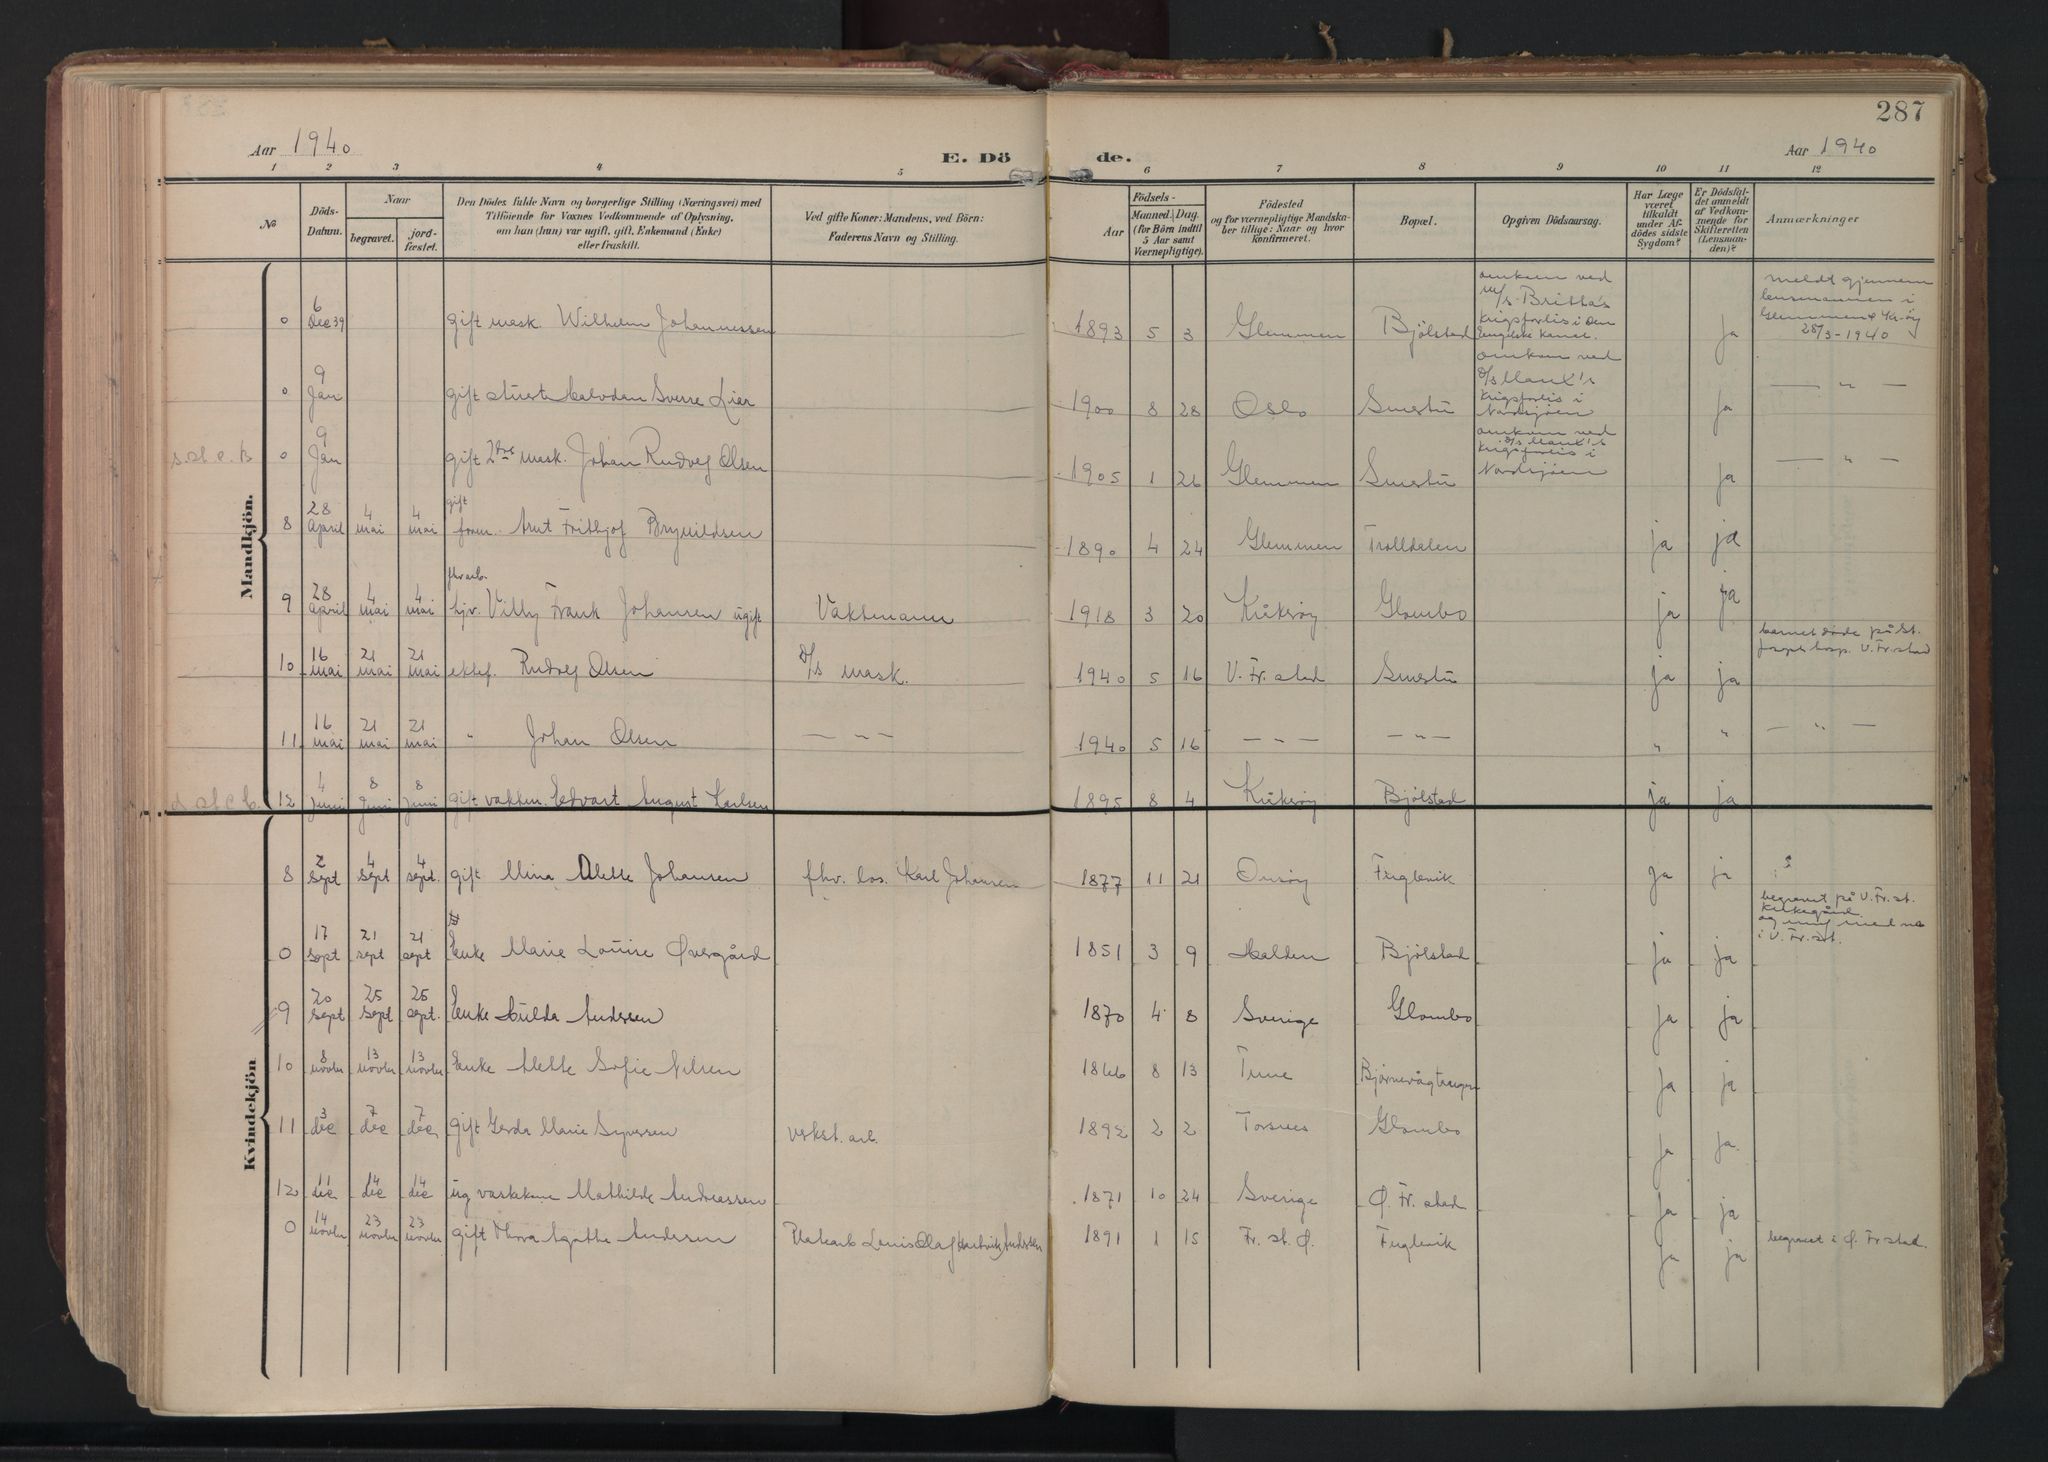 287
Aar 1940
E. Dö
de.
Aar 1940
1 2 3 4 5 6 7 8 9 10 11 12
No
Döds-Datum.
Naar
begravet.
jord-fæstet.
Den Dödes fulde Navn og borgerlige Stilling (Næringsvei) med
Tilföiende for Voxnes Vedkommende af Oplysning,
om han (hun) var ugift, gift, Enkemand (Enke)
eller fraskilt.
Ved gifte Koner: Mandens, ved Börn:
Faderens Navn og Stilling.
Födsels-
Aar
Maaned. Dag.
(for Börn indtil
5 Aar samt
Værnepligtige).
Födested
og for værnepligtige Mandska-
ber tillige: Naar og hvor
Konfirmeret.
Bopæl.
Opgiven Dödsaarsag.
Har Læge
været
tilkaldt
under Af-
dödes sidste
Sygdom?
Er Dödsfal-
det anmeldt
af Vedkom-
mende for
Skifteretten
(Lensman-
den)?
Anmærkninger
Mandkjön.
0 6 Dec 39 gift mask. Wilhelm Johannessen 1893 5 3 Glemmen Bjölstad omkom ved m/s Britta's krigsforlis i den Engelske kanal. ja meldt gjennem lensmannen i Glemmen & Kr.öy 28/3-1940
0 9 Jan gift stuert Halvdan Sverre Lier 1900 8 28 Oslo Smertu omkom ved D/s Manx's krigsforlis i Nordsjöen ja — " —
0 9 Jan gift 2den mask. Johan Rudolf Olsen 1905 1 26 Glemmen Smertu omkom ved D/s Manx's krigsforlis i Nordsjöen ja — " —
8 28 April 4 mai 4 mai gift form. Arnt Frithjof Brynildsen 1890 4 24 Glemmen Trolldalen ja ja
9 28 April 4 mai 4 mai fhv arb. hjv. Villy Frank Johansen ugift Vaktmann 1918 3 20 Kråkröy Glombo ja ja
10 16 mai 21 mai 21 mai ektef. Rudolf Olsen D/s mask. 1940 5 16 V. Fr. stad Smertu ja ja barnet döde på St. Josephs hosp. V. Fr. stad
11 16 mai 21 mai 21 mai " Johan Olsen — " — 1940 5 16 — " — — " — " " — " —
12 4 Juni 8 Juni 8 Juni gift vaktm. Edvart August Karlsen 1895 8 4 Kråkröy Bjölstad ja ja
Kvindekjön
8 2 sept 4 sept 4 sept. gift Mina Alette Johansen fhv. los. Karl Johansen 1877 11 21 Onsöy Fuglevik ja ja
0 17 sept 21 sept 21 sept Enke Marie Louise Øvergård 1851 3 9 Halden Bjölstad ja ja begravet på V. Fr. st. kirkegård i V. Fr. st.
9 20 sept 25 sept 25 sept. Enke Hulda Andersen 1870 4 8 Sverige Glombo ja ja
10 8 novbr 13 novbr 13 novbr Enke Alette Sofie Nilsen 1866 8 13 Tune ja ja
11 3 dec 7 dec 7 dec gift Gerda Marie Syversen verkst. arb. 1892 2 2 Torsnes Glombo ja ja
12 11 dec 14 dec 14 dec ug vaskekone Mathilde Andreassen 1871 10 24 Sverige Ø. Fr. stad ja ja
0 14 novbr 23 novbr 23 novbr gift Thora Agathe Andersen Louis Olaf Andersen 1891 1 15 Fr. st. Ø. Fuglevik ja ja begravet i Ø. Fr stad.